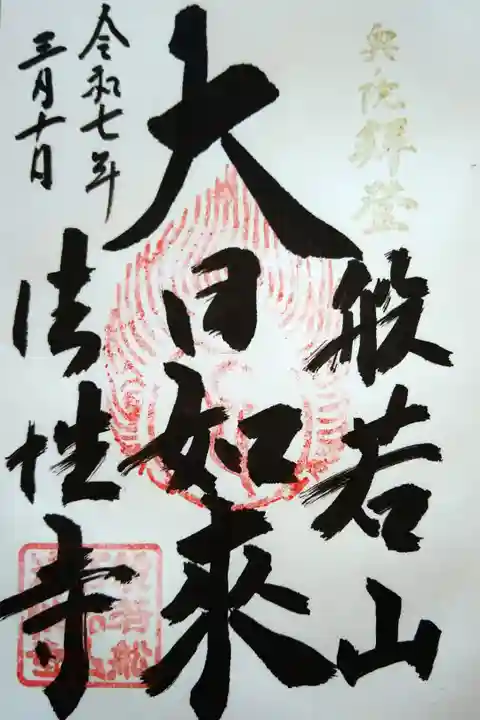 奥院拝登
般若山
大日如来
法性寺
令和七年
三月十日